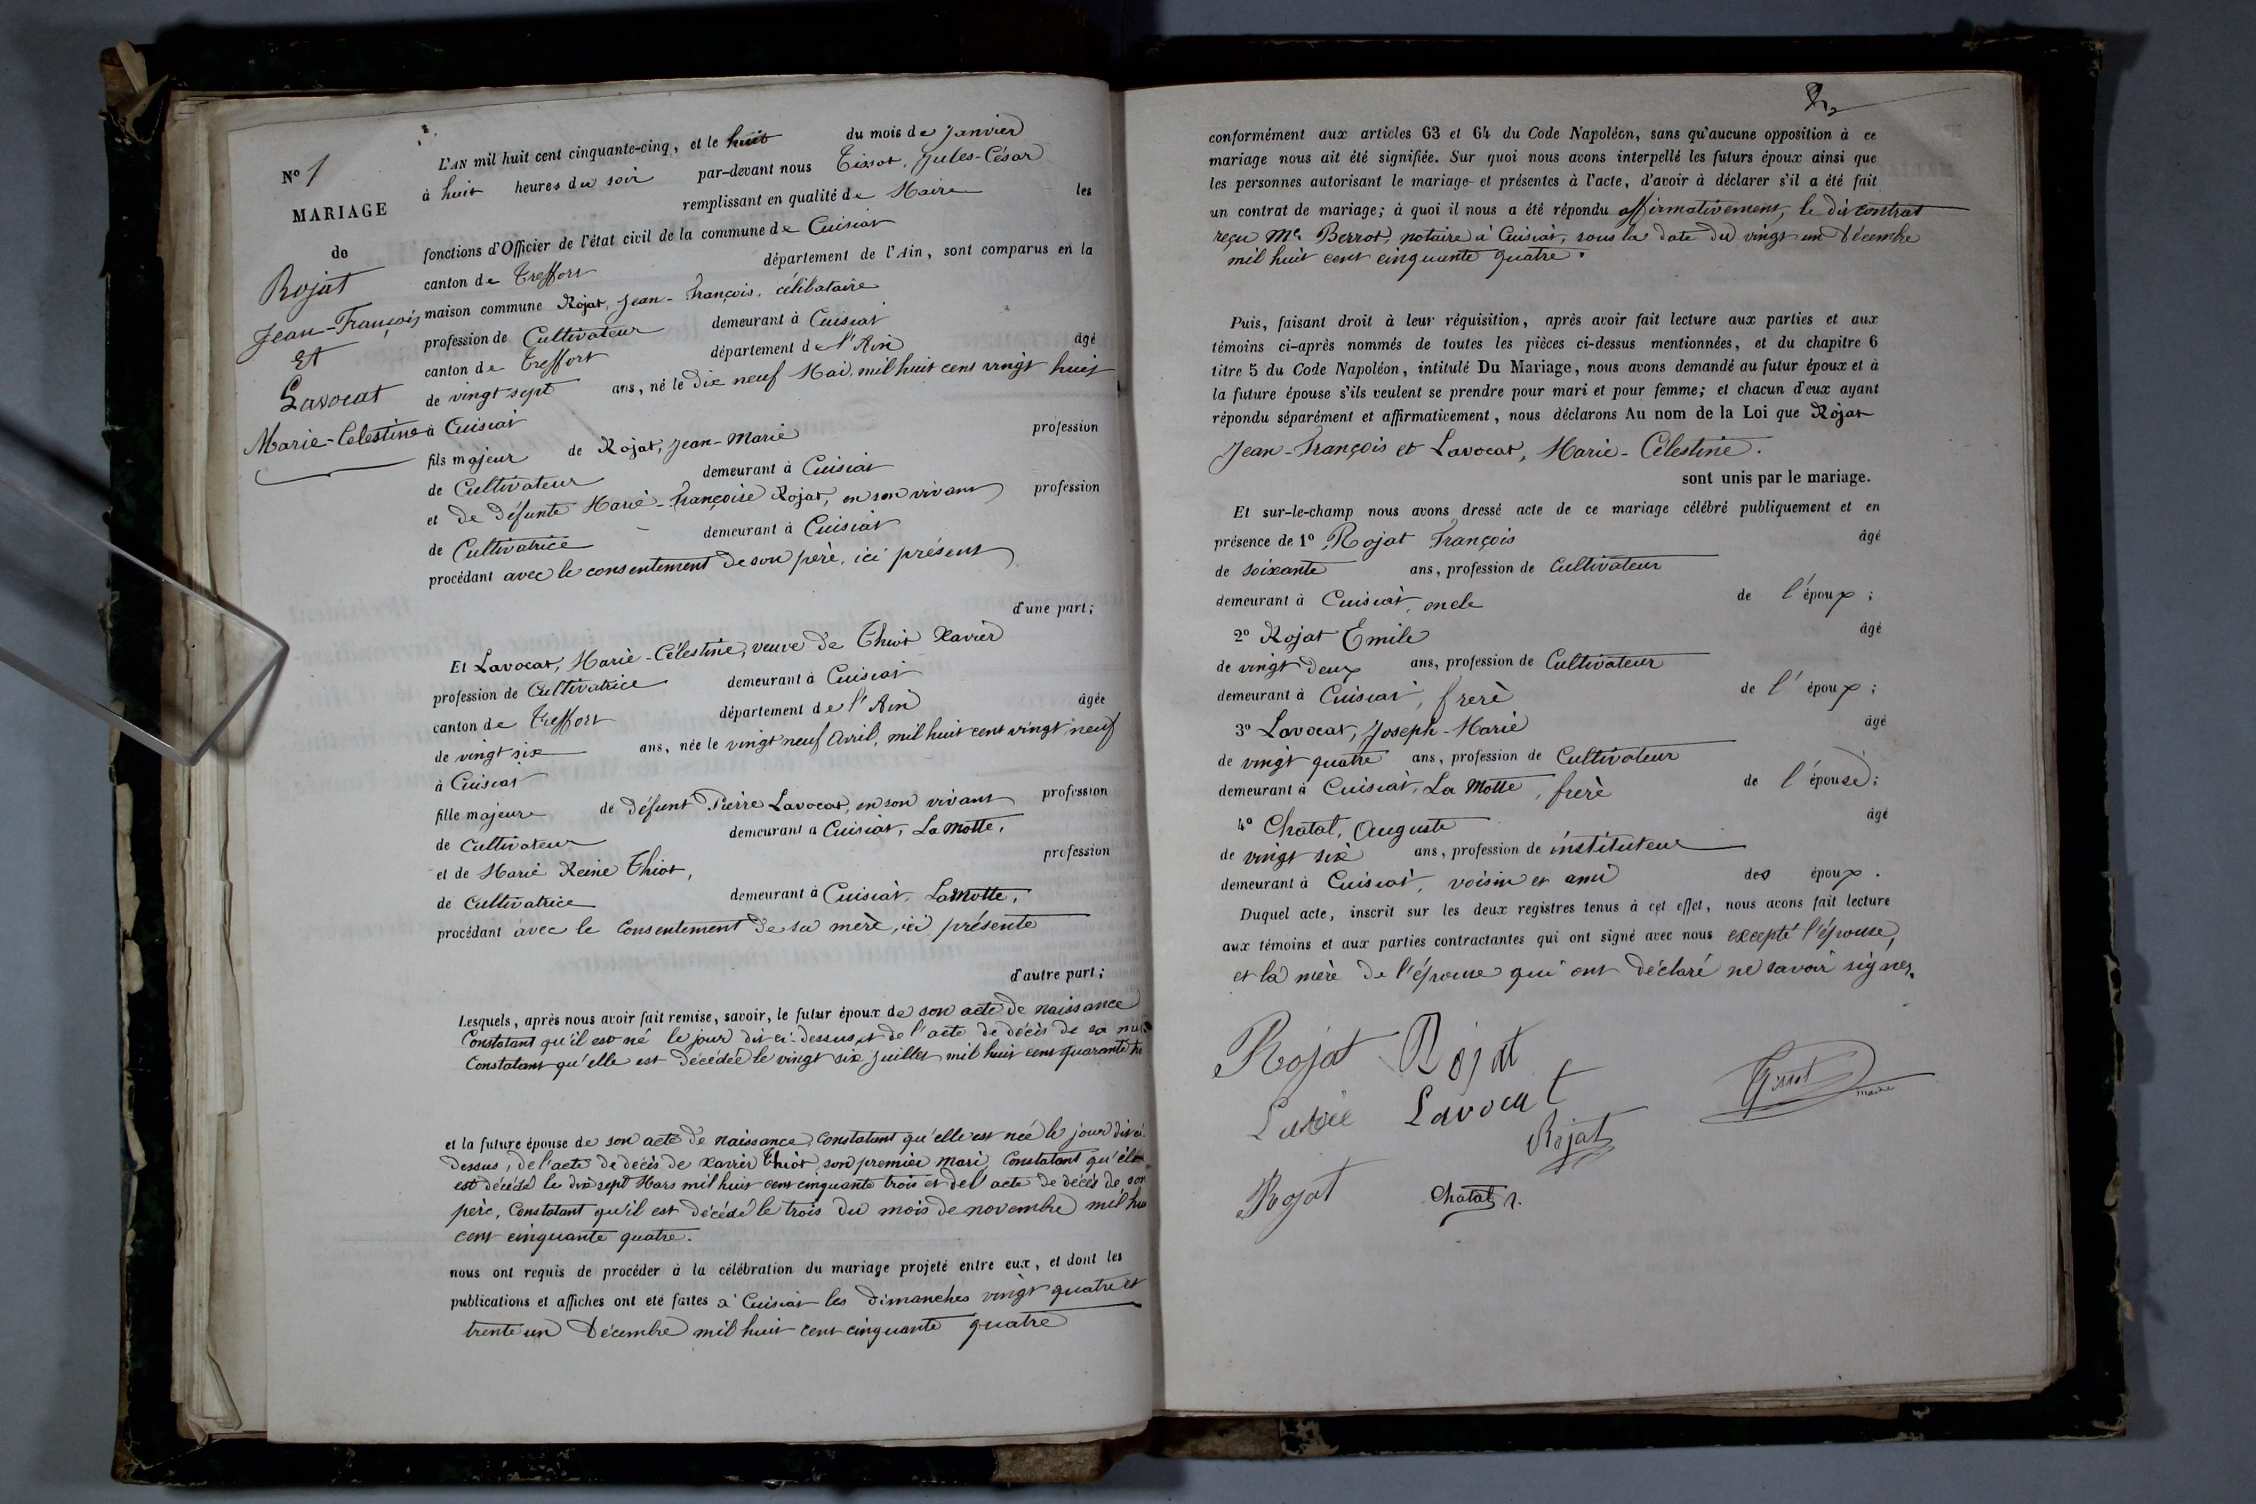 N° 1
MARIAGE
de
Rojat
Jean-François
Et
Lavocat
Marie-Célestine
L'AN mil huit cent cinquante-cinq, et le huit du mois de Janvier
à huit heures du soir par-devant nous Tissot, Jules-César
remplissant en qualité de Maire les
fonctions d'Officier de l'état civil de la commune de Cuisiat
canton de Treffort département de l'Ain, sont comparus en la
maison commune Rojat, Jean-François, célibataire
profession de Cultivateur demeurant à Cuisiat
canton de Treffort département de l'Ain âgé
de vingt sept ans, né le dix neuf Mai, mil huit cent vingt huit
à Cuisiat
fils majeur de Rojat, Jean-Marie profession
de Cultivateur demeurant à Cuisiat
et de défunte Marie-Françoise Rojat, en son vivant profession
de Cultivatrice demeurant à Cuisiat
procédant avec le consentement de son père, ici présent
d'une part;
Et Lavocat, Marie-Célestine, veuve de Thiot Xavier
profession de Cultivatrice demeurant à Cuisiat
canton de Treffort département de l'Ain âgée
de vingt six ans, née le vingt neuf Avril, mil huit cent vingt neuf
à Cuisiat
fille majeure de défunt Pierre Lavocat, en son vivant profession
de Cultivateur demeurant à Cuisiat, La Motte,
et de Marie Reine Thiot, profession
de Cultivatrice demeurant à Cuisiat, La Motte,
procédant avec le consentement de sa mère, ici présente
d'autre part;
Lesquels, après nous avoir fait remise, savoir, le futur époux de son acte de naissance
Constatant qu'il est né le jour dit ci-dessus, et de l'acte de décès de sa
Constatant qu'elle est décédée le vingt six juillet mil huit cent quarante
et la future épouse de son acte de naissance, Constatant qu'elle est née le jour dit ci-
dessus, de l'acte de décès de Xavier Thiot, son premier mari, Constatant qu'il
est décédé le dix sept Mars mil huit cent cinquante trois et de l'acte de décès de son
père, Constatant qu'il est décédé le trois du mois de novembre mil
cent cinquante quatre.
nous ont requis de procéder à la célébration du mariage projeté entre eux, et dont les
publications et affiches ont été faites à Cuisiat les dimanches vingt quatre et
trente un Décembre mil huit cent cinquante quatre
conformément aux articles 63 et 64 du Code Napoléon, sans qu'aucune opposition à ce
mariage nous ait été signifiée. Sur quoi nous avons interpellé les futurs époux ainsi que
les personnes autorisant le mariage et présentes à l'acte, d'avoir à déclarer s'il a été fait
un contrat de mariage; à quoi il nous a été répondu affirmativement, le dit contrat
reçu Me Berrot, notaire à Cuisiat, sous la date du vingt un Décembre
mil huit cent cinquante quatre.
Puis, faisant droit à leur réquisition, après avoir fait lecture aux parties et aux
témoins ci-après nommés de toutes les pièces ci-dessus mentionnées, et du chapitre 6
titre 5 du Code Napoléon, intitulé Du Mariage, nous avons demandé au futur époux et à
la future épouse s'ils veulent se prendre pour mari et pour femme; et chacun d'eux ayant
répondu séparément et affirmativement, nous déclarons Au nom de la Loi que Rojat
Jean-François et Lavocat, Marie-Célestine.
sont unis par le mariage.
Et sur-le-champ nous avons dressé acte de ce mariage célébré publiquement et en
présence de 1° Rojat François âgé
de soixante ans, profession de Cultivateur
demeurant à Cuisiat, oncle de l'époux;
2° Rojat Emile âgé
de vingt deux ans, profession de Cultivateur
demeurant à Cuisiat, frère de l'époux;
3° Lavocat, Joseph-Marie âgé
de vingt quatre ans, profession de Cultivateur
demeurant à Cuisiat, La Motte, frère de l'épouse;
4° Chatal, Auguste âgé
de vingt six ans, profession de instituteur
demeurant à Cuisiat, voisin et ami des époux.
Duquel acte, inscrit sur les deux registres tenus à cet effet, nous avons fait lecture
aux témoins et aux parties contractantes qui ont signé avec nous excepté l'épouse,
et la mère de l'épouse qui ont déclaré ne savoir signer.
Rojat Rojat
Lavocat
Tissot
maire
Rojat
Rojat
Chatal